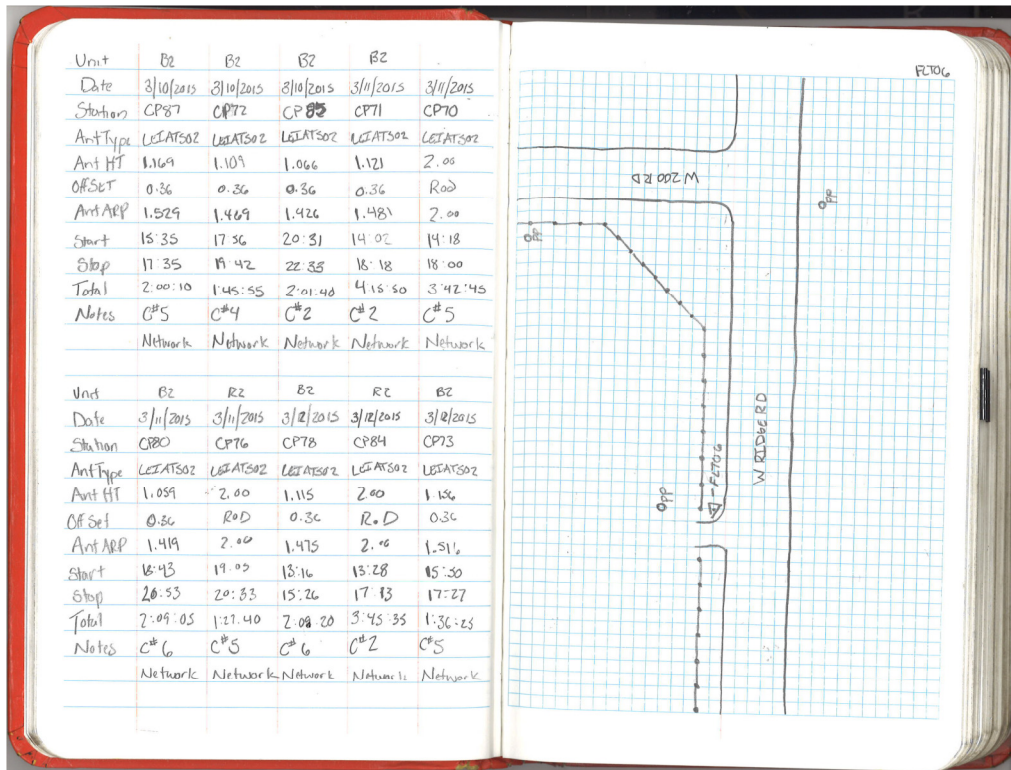 Unit B2 B2 B2 B2
Date 3/10/2015 3/10/2015 3/10/2015 3/11/2015 3/11/2015
Station CP87 CP72 CP85 CP71 CP70
Ant Type LEIATS02 LEIATS02 LEIATS02 LEIATS02 LEIATS02
Ant HT 1.169 1.109 1.066 1.121 2.00
OffSET 0.36 0.36 0.36 0.36 Rod
Ant ARP 1.529 1.469 1.426 1.481 2.00
Start 15:35 17:56 20:31 14:02 14:18
Stop 17:35 19:42 22:33 18:18 18:00
Total 2:00:10 1:45:55 2:01:40 4:15:50 3:42:45
Notes C#5 C#4 C#2 C#2 C#5
Network Network Network Network Network
Unit B2 R2 B2 R2 B2
Date 3/11/2015 3/11/2015 3/12/2015 3/12/2015 3/12/2015
Station CP80 CP76 CP78 CP84 CP73
Ant Type LEIATS02 LEIATS02 LEIATS02 LEIATS02 LEIATS02
Ant HT 1.059 2.00 1.115 2.00 1.156
Off Set 0.36 ROD 0.36 ROD 0.36
Ant ARP 1.419 2.00 1.475 2.00 1.516
Start 18:43 19:05 13:16 13:28 15:50
Stop 20:53 20:33 15:26 17:13 17:27
Total 2:09:05 1:27:40 2:09:20 3:45:35 1:36:25
Notes C#6 C#5 C#6 C#2 C#5
Network Network Network Network Network
FLT06
W 200 RD
PP
PP
W RIDGE RD
PP
FLT06